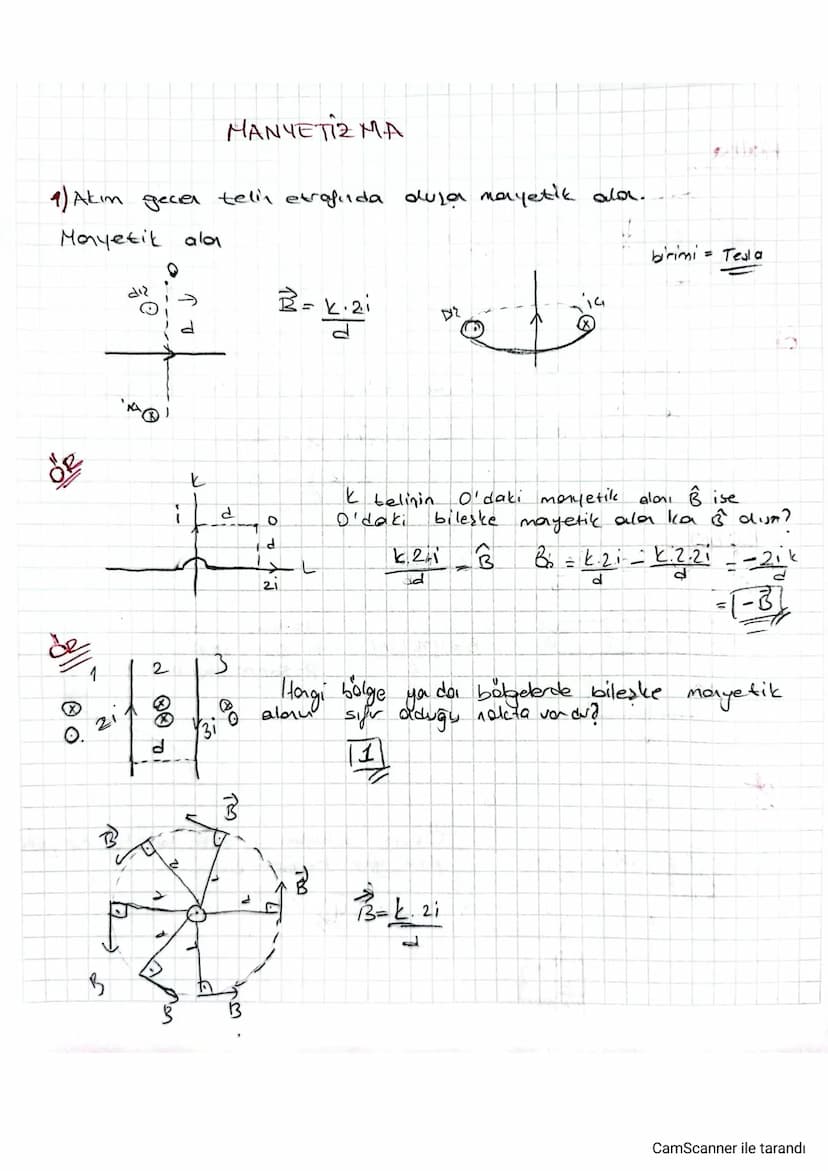 MANYETİZMA
1) Akım geçen telin etrafında oluşan manyetik alan.
Manyetik alan
birimi = Tesla
dış
d
B = k.2i/d
Dış
iç
iç
ÖR
K
i
d
O
d
L
2i
K telinin O'daki manyetik alanı B ise
O'daki bileşke manyetik alan kaç B olur?
k.2i/d = B
B₀ = k.2i/d - k.2.2i/d = -2ik/d
= -B
ÖR
1 2 3
2i
3i
d
Hangi bölge ya da bölgelerde bileşke manyetik
alanın sıfır olduğu nokta vardır?
1
B
B
B
d
d
d
d
d
d
B = k.2i/d
B
B
B
CamScanner ile tarandı